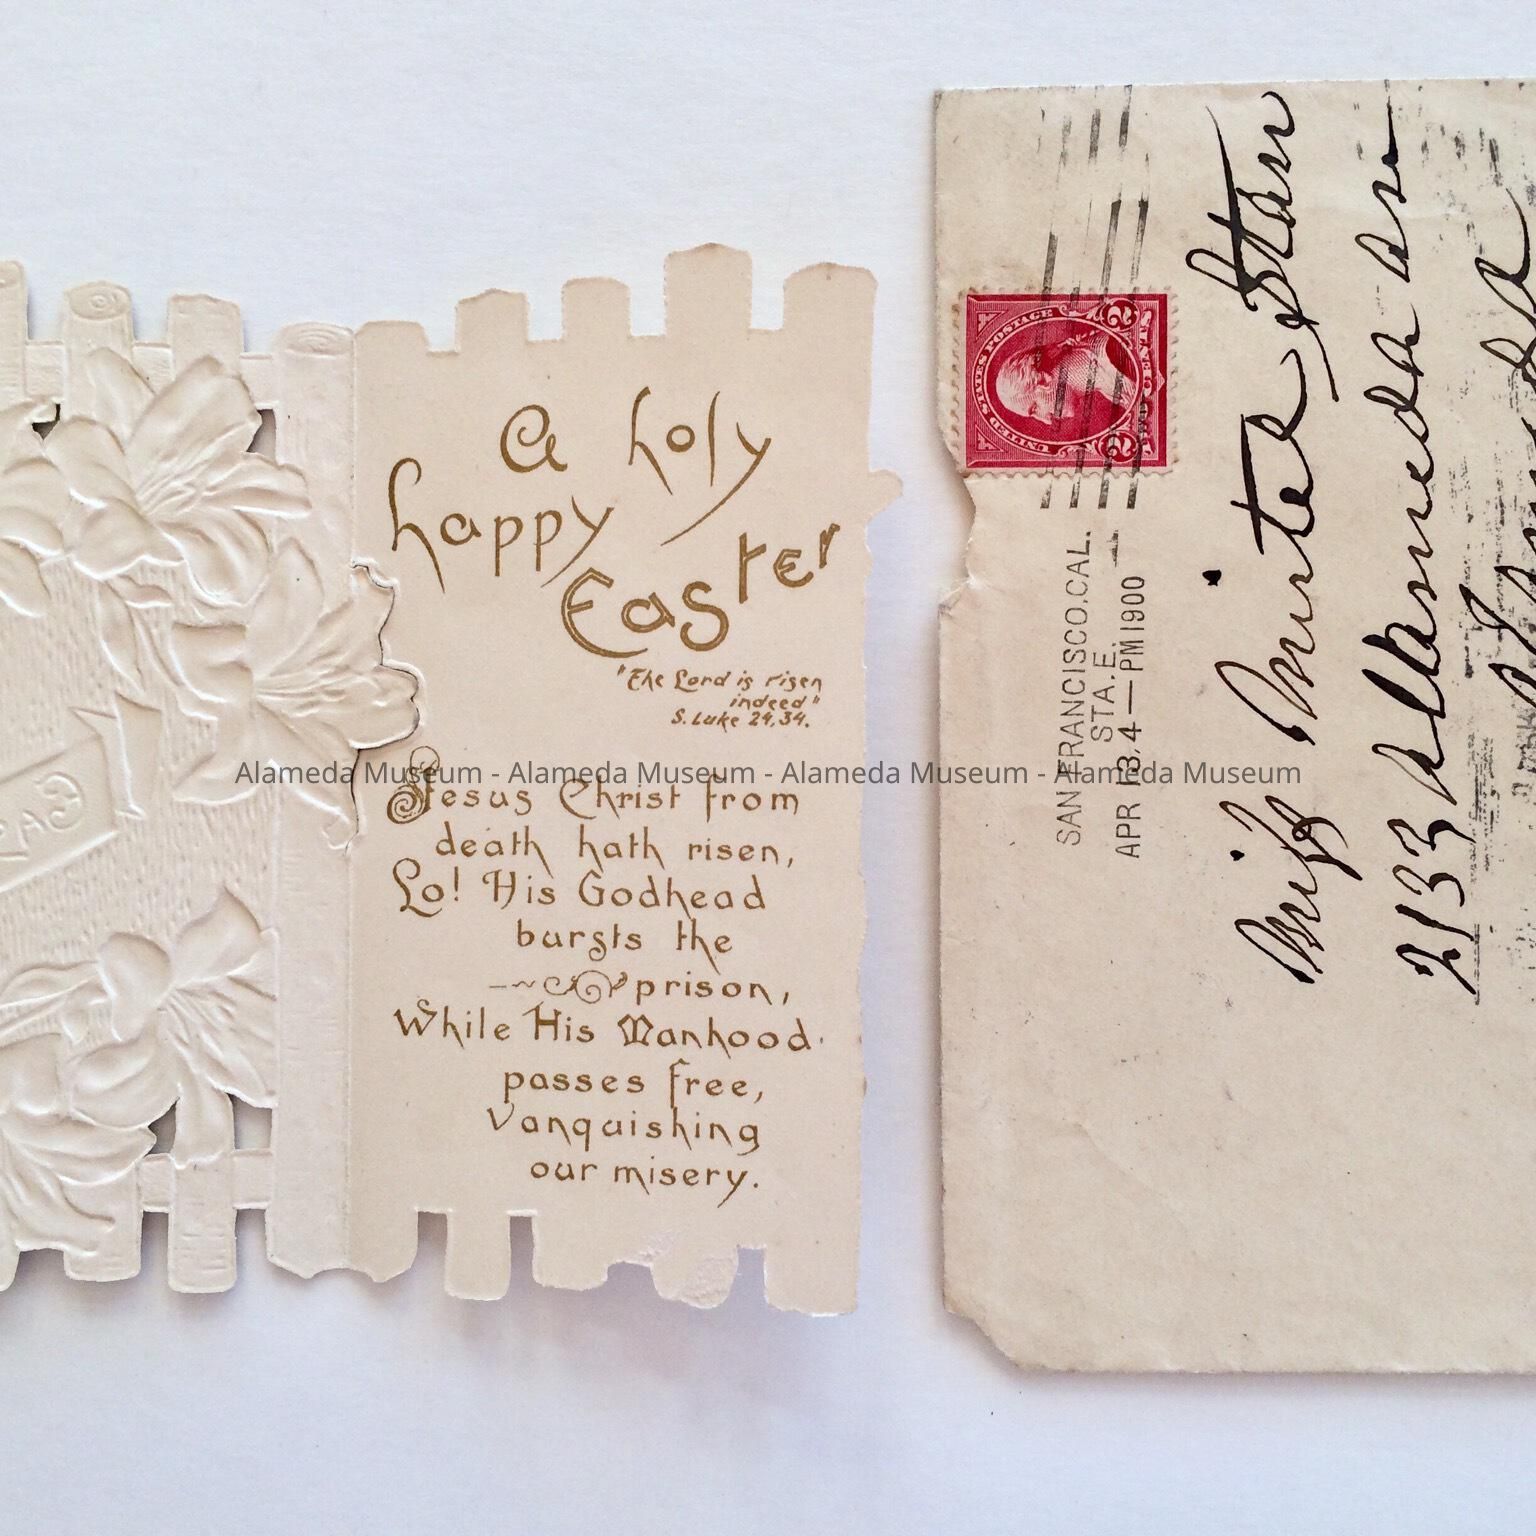 A holy
happy
Easter
"The Lord is risen
indeed"
S. Luke 24,34.
Jesus Christ from
death hath risen,
Lo! His Godhead
bursts the
prison,
While His Manhood
passes free,
Vanquishing
our misery.
Alameda Museum - Alameda Museum - Alameda Museum - Alameda Museum
SAN FRANCISCO, CAL.
STA. E.
APR 13 4—PM 1900
UNITED STATES POSTAGE
2 2
TWO
Miss Minta Starr
2133 Alameda Ave
Alameda